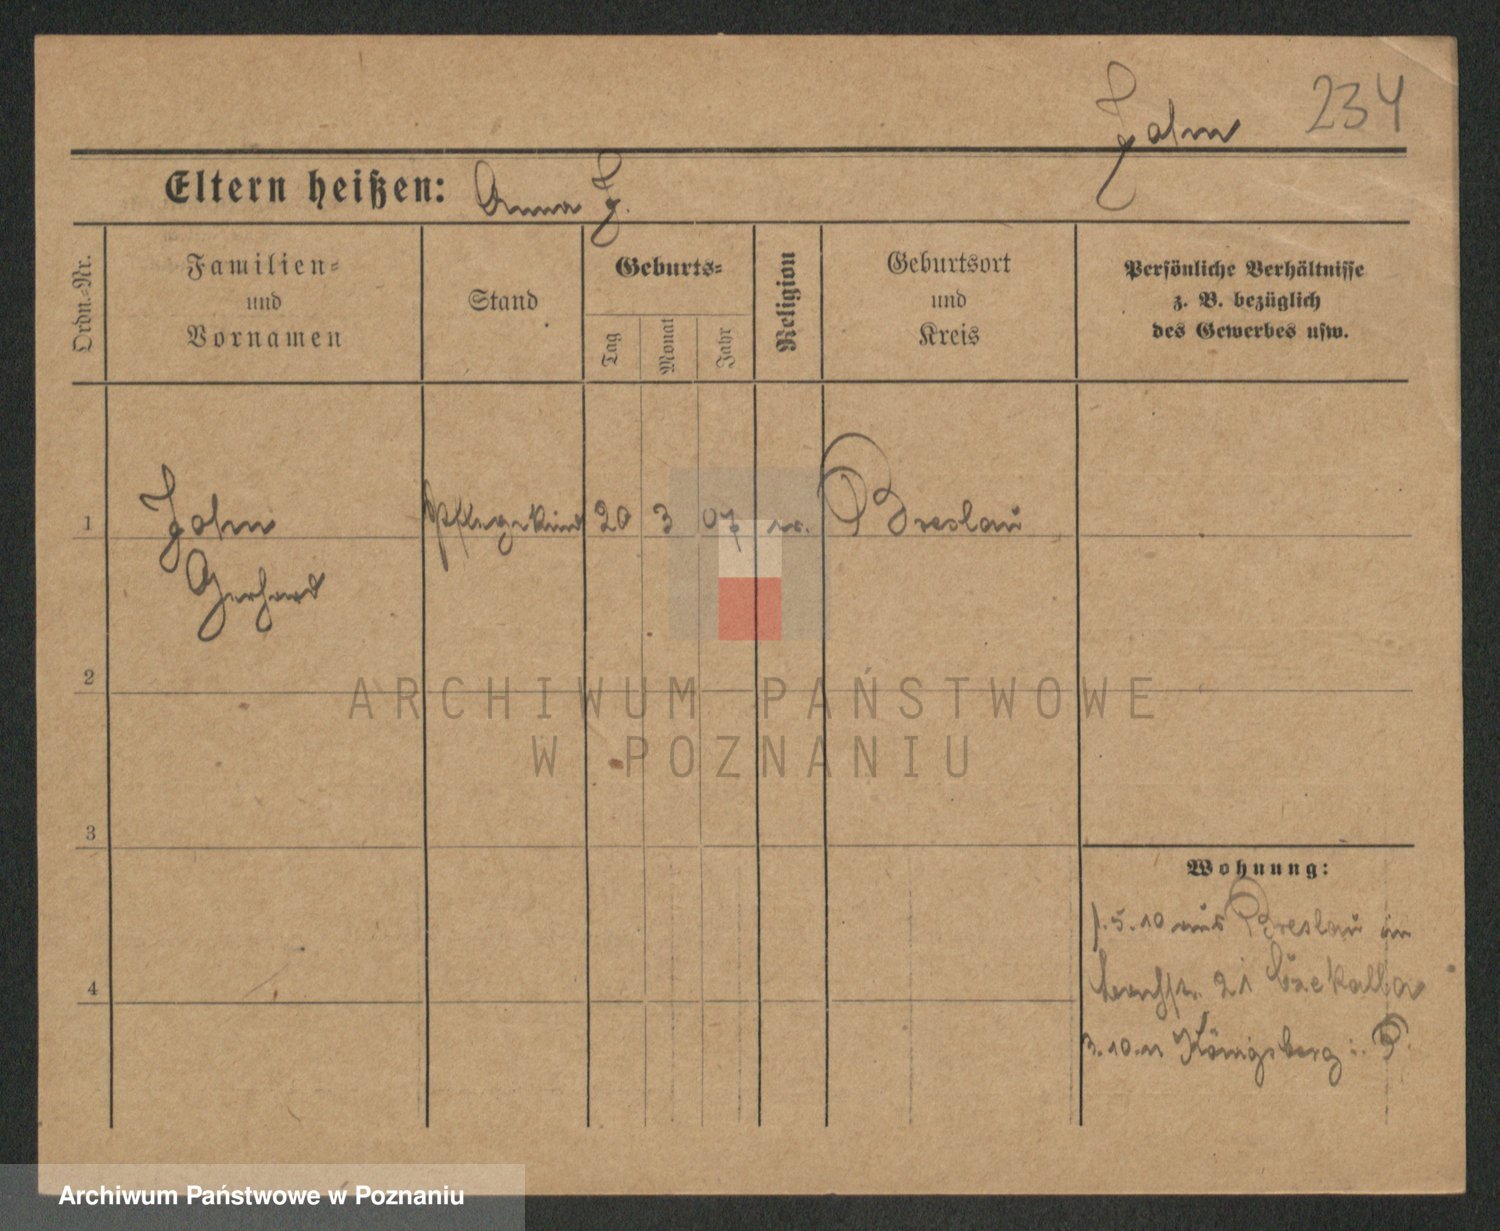 Jahn 234
Eltern heißen: Anna J.
Ordn.-Nr.
Familien-
und
Vornamen
Stand
Geburts-
Tag
Monat
Jahr
Religion
Geburtsort
und
Kreis
Persönliche Verhältnisse
z. B. bezüglich
des Gewerbes usw.
1 Jahn Pflegekind 20 3 07 Breslau
Gerhard
2
3
4
Wohnung:
1.5.10 aus Breslau in
21
3.10.11 Königsberg i. P.
ARCHIWUM PAŃSTWOWE
W POZNANIU
Archiwum Państwowe w Poznaniu